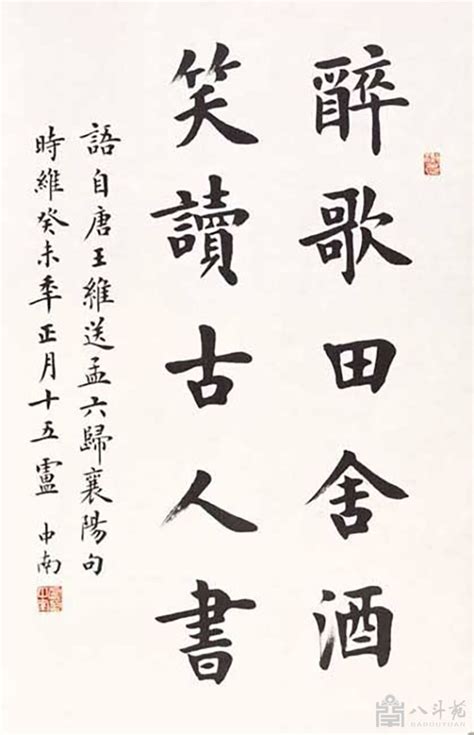 醉歌田舍酒
笑讀古人書
語自唐王維送孟六歸襄陽句
時維癸未季正月十五盧中南
八斗苑
BADOUYUAN